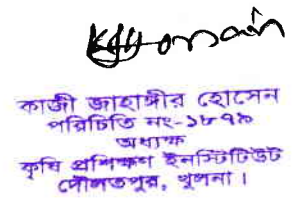 কাজী জাহাঙ্গীর হোসেন
পরিচিতি নং-১৮৭৯
অধ্যক্ষ
কৃষি প্রশিক্ষণ ইনস্টিটিউট
দৌলতপুর, খুলনা ।